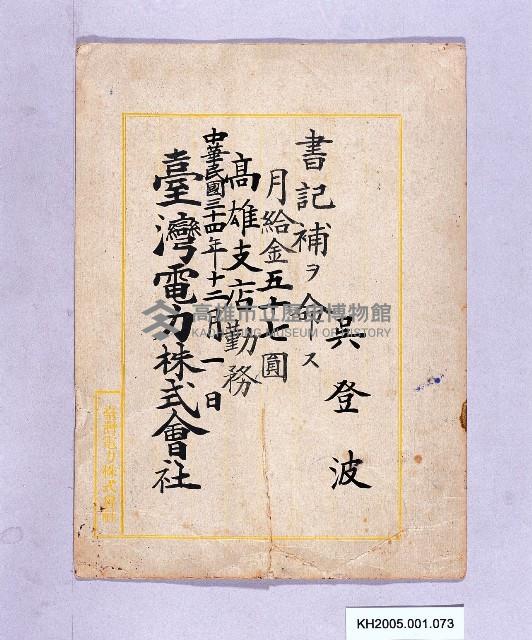 吳登波
書記補ヲ命ス
月給金五十七圓
高雄支店勤務
中華民國三十四年十二月一日
臺灣電力株式會社
臺灣電力株式會社
高雄市立歷史博物館
KAOHSIUNG MUSEUM OF HISTORY
KH2005.001.073